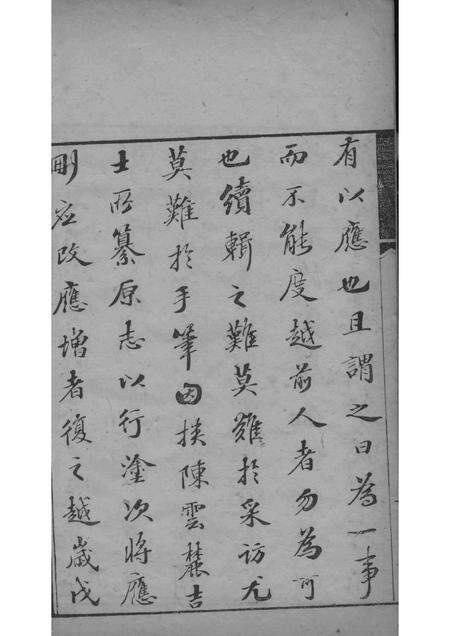 有以應也且謂之曰為一事
而不能度越前人者勿為可
也續輯之難莫難於采訪尤
莫難於手筆因挾陳雲麓吉
士所纂原志以行塗次將應
刪應改應增者復之越歲戊